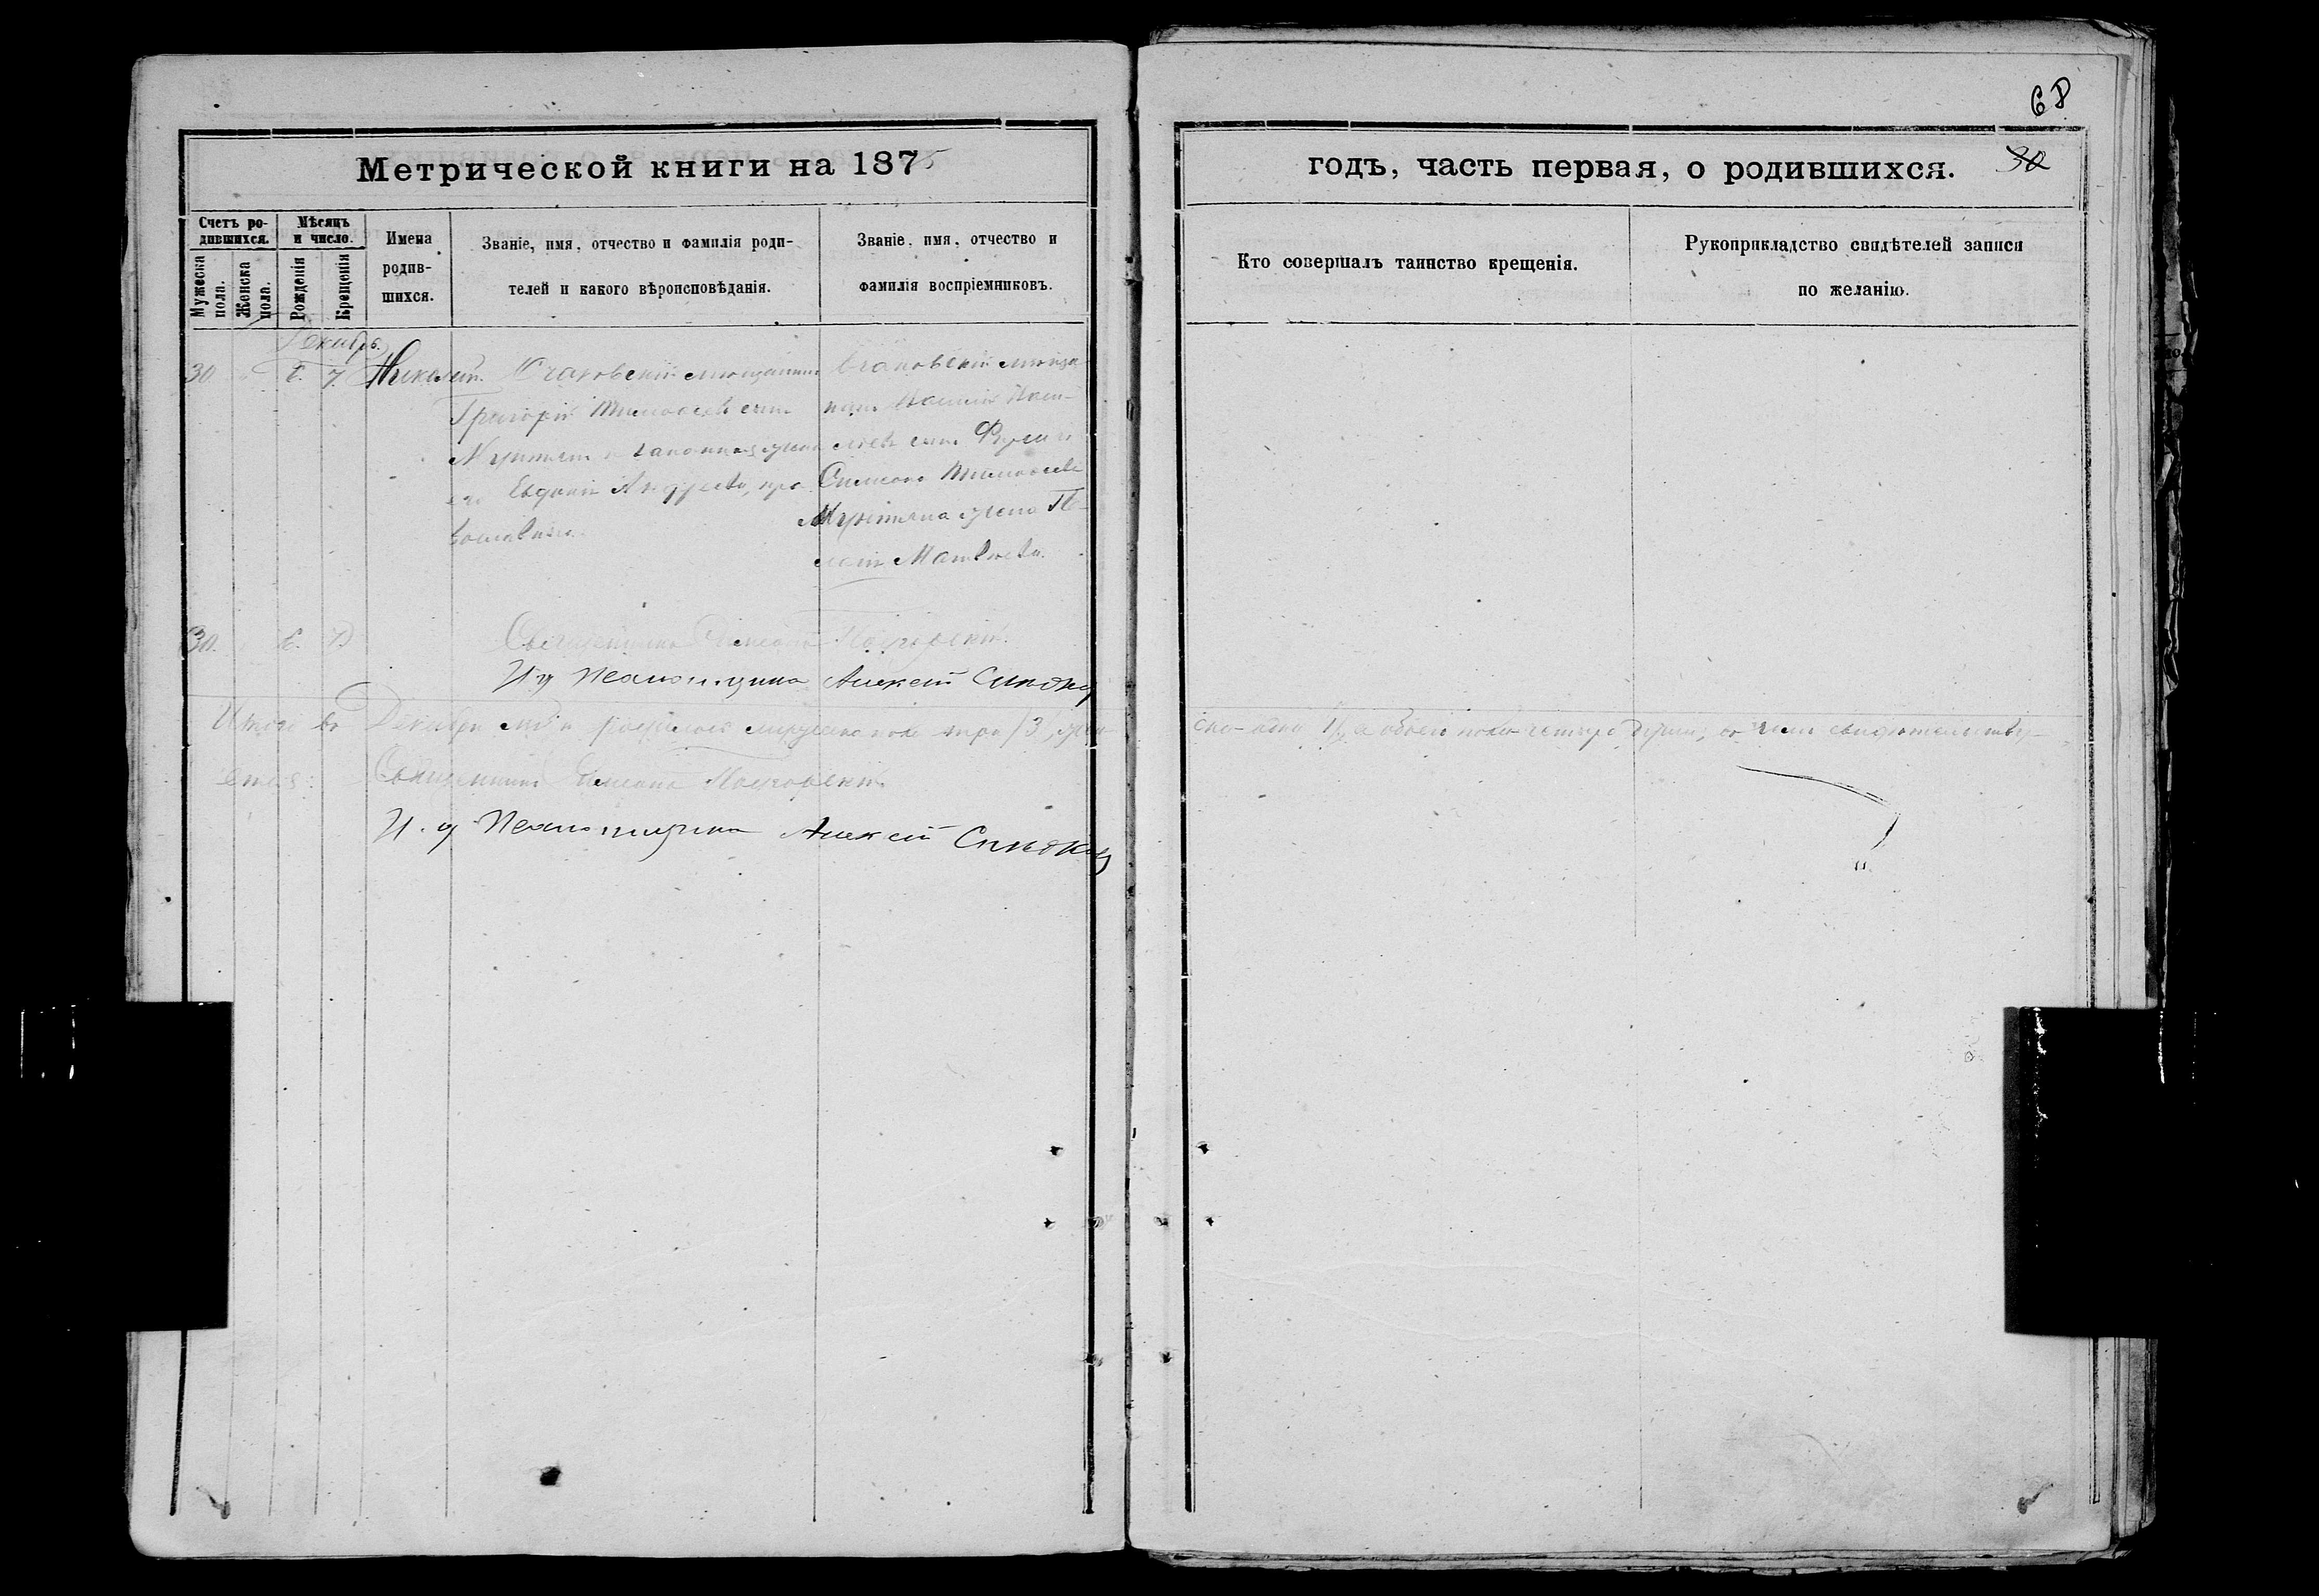 68
Метрической книги на 1875
годъ, часть первая, о родившихся.
30
Счетъ ро-
дившихся.
Мѣсяцъ
и число.
Мужеска
пола.
Женска
пола.
Рожденія
Крещенія
Имена
родив-
шихся.
Званіе, имя, отчество и фамилія роди-
телей и какого вѣроисповѣданія.
Званіе, имя, отчество и
фамилія воспріемниковъ.
Кто совершалъ таинство крещенія.
Рукоприкладство свидѣтелей записи
по желанію.
Декабрь.
30 6. 7 Николай. Очаковскій мѣщанинъ
Григорій Тимофеевъ сынъ
и законная жена
его Евдокія Андреева, пра-
вославные.
Очаковскій мѣща-
нинъ Василій
сынъ
Симеона Тимофеева
жена
Матвѣева.
30. 6. 7
Священникъ Симеонъ
И. д. Псаломщика Алексій
Итого во Декабрѣ родилось мужеска пола три /3/, жен-
ска- одна 1/, а обоего пола четыре души, въ чемъ свидѣтельству-
емъ:
Священникъ Симеонъ
И. д. Псаломщика Алексій